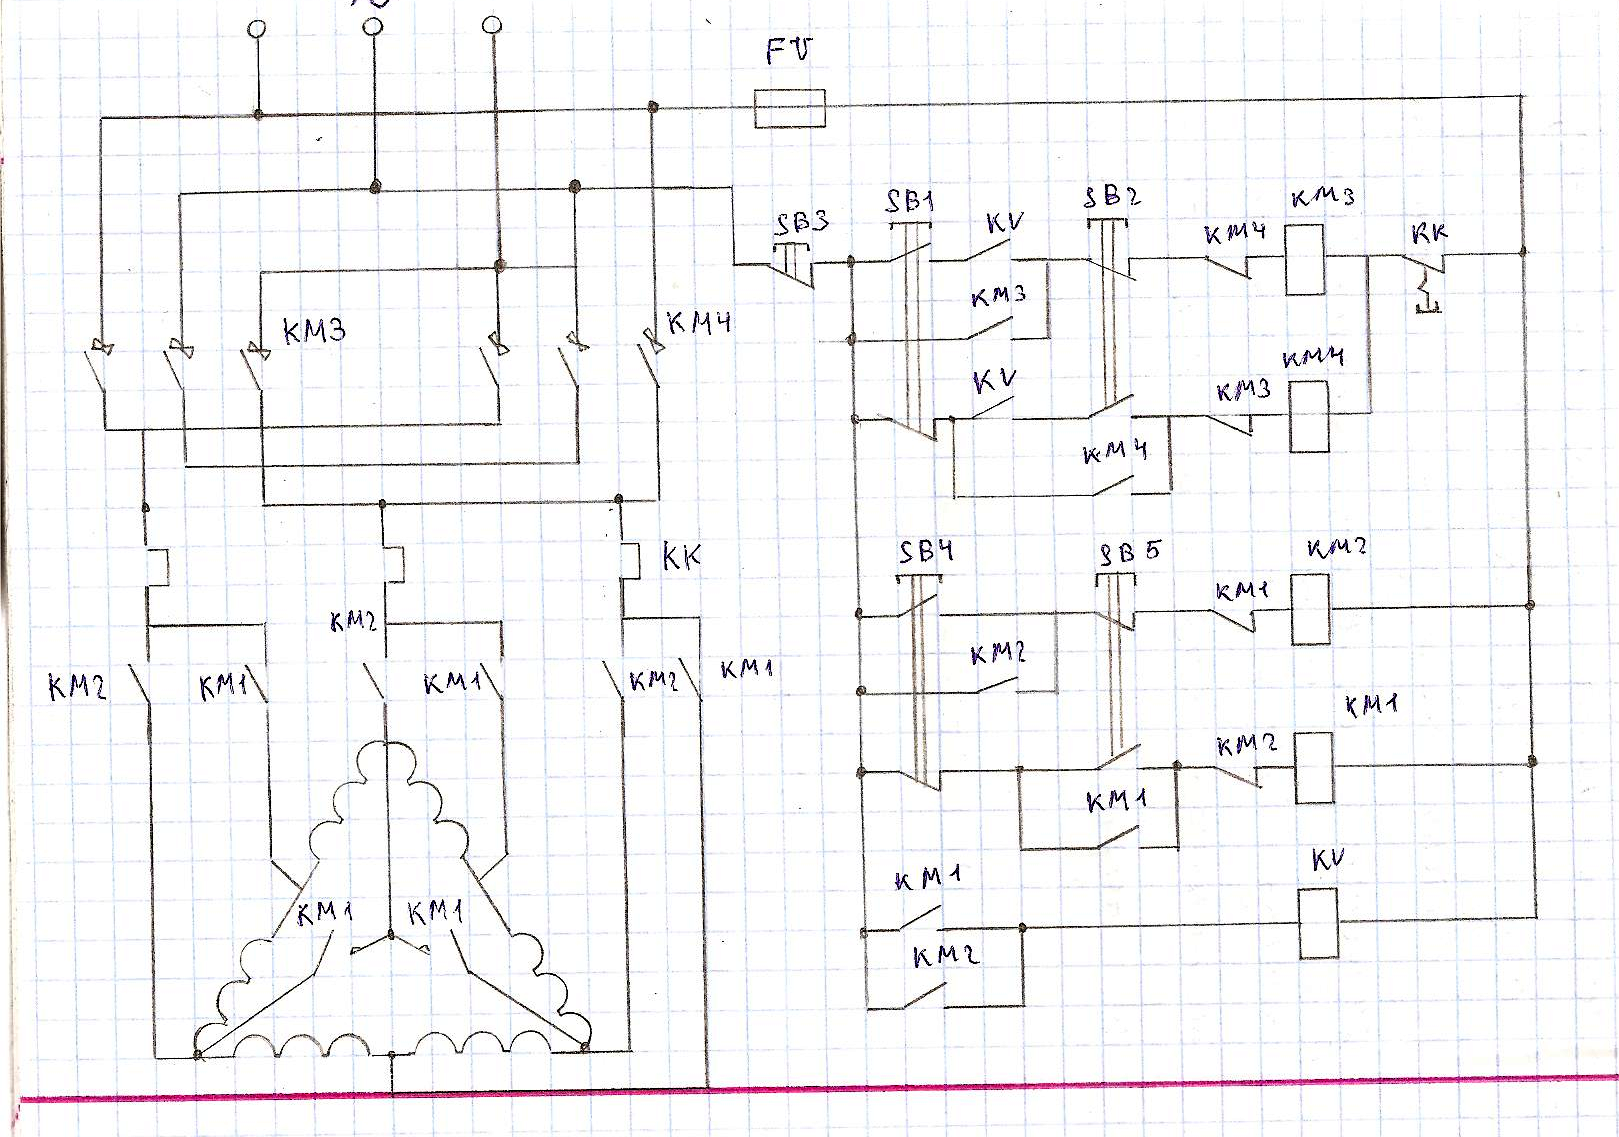 FU
SB3
SB1
KV
SB2
KM4
KM3
KK
KM3
KM3
KM4
KV
KM3
KM4
KM4
KK
SB4
SB5
KM1
KM2
KM2
KM2
KM2
KM1
KM1
KM2
KM1
KM2
KM1
KM1
KM1
KM1
KM1
KV
KM2